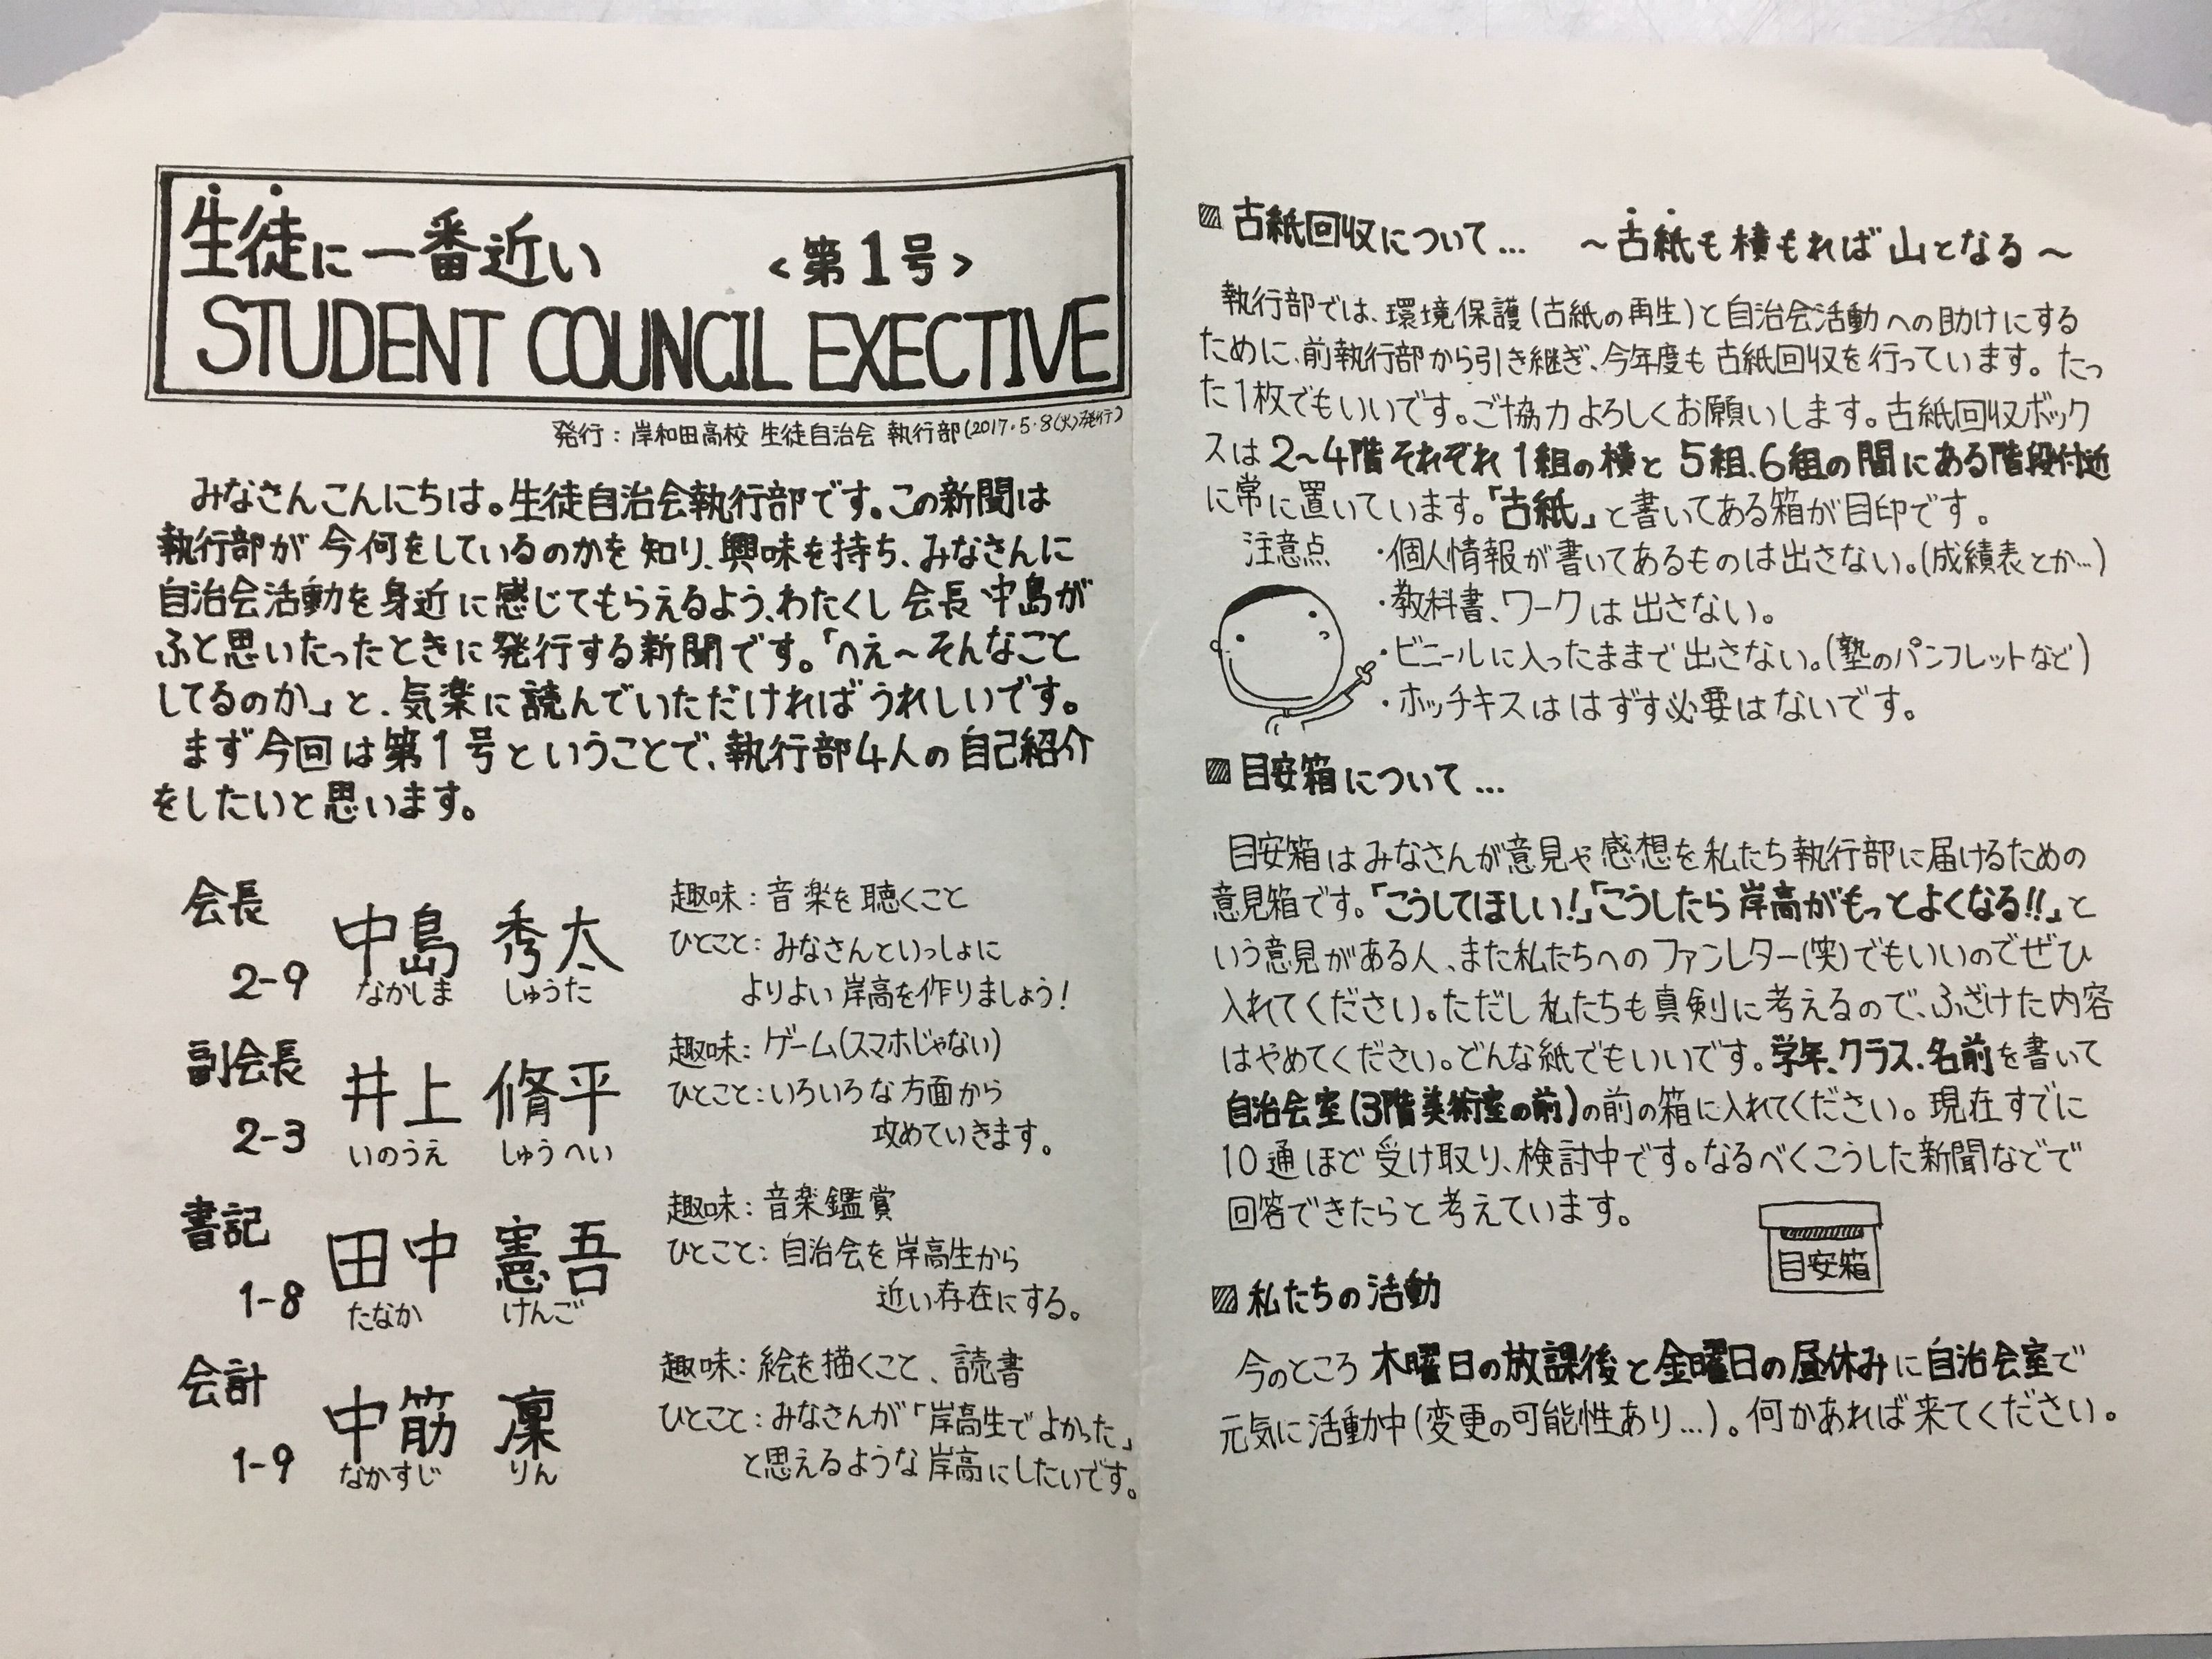 生徒に一番近い <第1号>
STUDENT COUNCIL EXECTIVE
発行：岸和田高校 生徒自治会 執行部(2017.5.8(火)発行)
みなさんこんにちは。生徒自治会執行部です。この新聞は
執行部が今何をしているのかを知り、興味を持ち、みなさんに
自治会活動を身近に感じてもらえるよう、わたくし会長・中島が
ふと思いたったときに発行する新聞です。「へえ〜そんなこと
してるのか」と、気楽に読んでいただければうれしいです。
まず今回は第1号ということで、執行部4人の自己紹介
をしたいと思います。
会長
2-9
中島 秀太
なかしま しゅうた
趣味：音楽を聴くこと
ひとこと：みなさんといっしょに
よりよい岸高を作りましょう！
副会長
2-3
井上 脩平
いのうえ しゅうへい
趣味：ゲーム(スマホじゃない)
ひとこと：いろいろな方面から
攻めていきます。
書記
1-8
田中 憲吾
たなか けんご
趣味：音楽鑑賞
ひとこと：自治会を岸高生から
近い存在にする。
会計
1-9
中筋 凜
なかすじ りん
趣味：絵を描くこと、読書
ひとこと：みなさんが「岸高生でよかった」
と思えるような岸高にしたいです。
古紙回収について… 〜古紙も積もれば山となる〜
執行部では、環境保護(古紙の再生)と自治会活動への助けにする
ために、前執行部から引き継ぎ、今年度も古紙回収を行っています。たっ
た1枚でもいいです。ご協力よろしくお願いします。古紙回収ボック
スは2〜4階それぞれ1組の横と5組、6組の間にある階段付近
に常に置いています。「古紙」と書いてある箱が目印です。
注意点 ・個人情報が書いてあるものは出さない。(成績表とか…)
・教科書、ワークは出さない。
・ビニールに入ったままで出さない。(塾のパンフレットなど)
・ホッチキスははずす必要はないです。
目安箱について…
目安箱はみなさんが意見や感想を私たち執行部に届けるための
意見箱です。「こうしてほしい！」「こうしたら岸高がもっとよくなる!!」と
いう意見がある人、また私たちへのファンレター(笑)でもいいのでぜひ
入れてください。ただし私たちも真剣に考えるので、ふざけた内容
はやめてください。どんな紙でもいいです。学年、クラス、名前を書いて
自治会室(3階美術室の前)の前の箱に入れてください。現在すでに
10通ほど受け取り、検討中です。なるべくこうした新聞などで
回答できたらと考えています。
目安箱
私たちの活動
今のところ木曜日の放課後と金曜日の昼休みに自治会室で
元気に活動中(変更の可能性あり…)。何かあれば来てください。